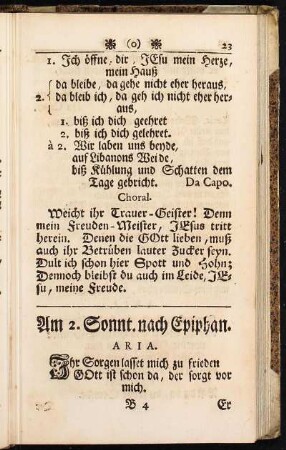 (o) 23
1. Ich öffne, dir, JEsu mein Herze,
mein Hauß
da bleibe, da gehe nicht eher heraus,
2. da bleib ich, da geh ich nicht eher her-
aus,
1. biß ich dich geehret
2. biß ich dich gelehret.
à 2. Wir laben uns beyde,
auf Libanons Weide,
biß Kühlung und Schatten dem
Tage gebricht. Da Capo.
Choral.
Weicht ihr Trauer-Geister! Denn
mein Freuden-Meister, JEsus tritt
herein. Denen die GOtt lieben, muß
auch ihr Betrüben lauter Zucker seyn.
Dult ich schon hier Spott und Hohn;
Dennoch bleibst du auch im Leide, JE-
su, meine Freude.
Am 2. Sonnt. nach Epiphan.
ARIA.
Ihr Sorgen lasset mich zu frieden
GOtt ist schon da, der sorgt vor
mich.
B 4 Er